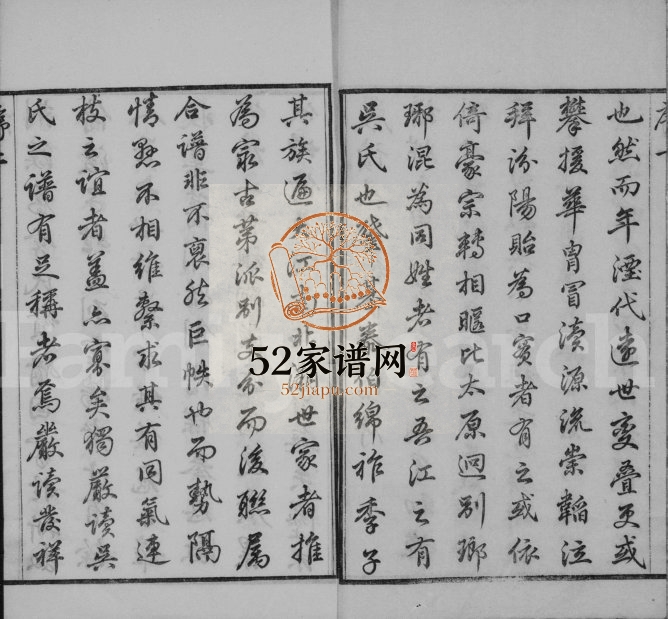 序一
也然而年湮代遠世变叠更或
攀援華胄冒瀆源流崇韜泣
拜汾陽貽為口實者有之或依
倚豪宗轉相暱比太原迥别瑯
琊混為同姓者有之吾江之有
吳氏也 泰伯綿祚季子
其族遍 江 世家者推
為最古第派别支分而後聯属
合譜非不裒然巨帙也而勢隔
情暌不相維繫求其有同氣連
枝之誼者盖亦寡矣獨嚴讀吳
氏之譜有足稱者焉嚴讀發祥
序二
52家谱网
52jiapu.com
FamilySearch